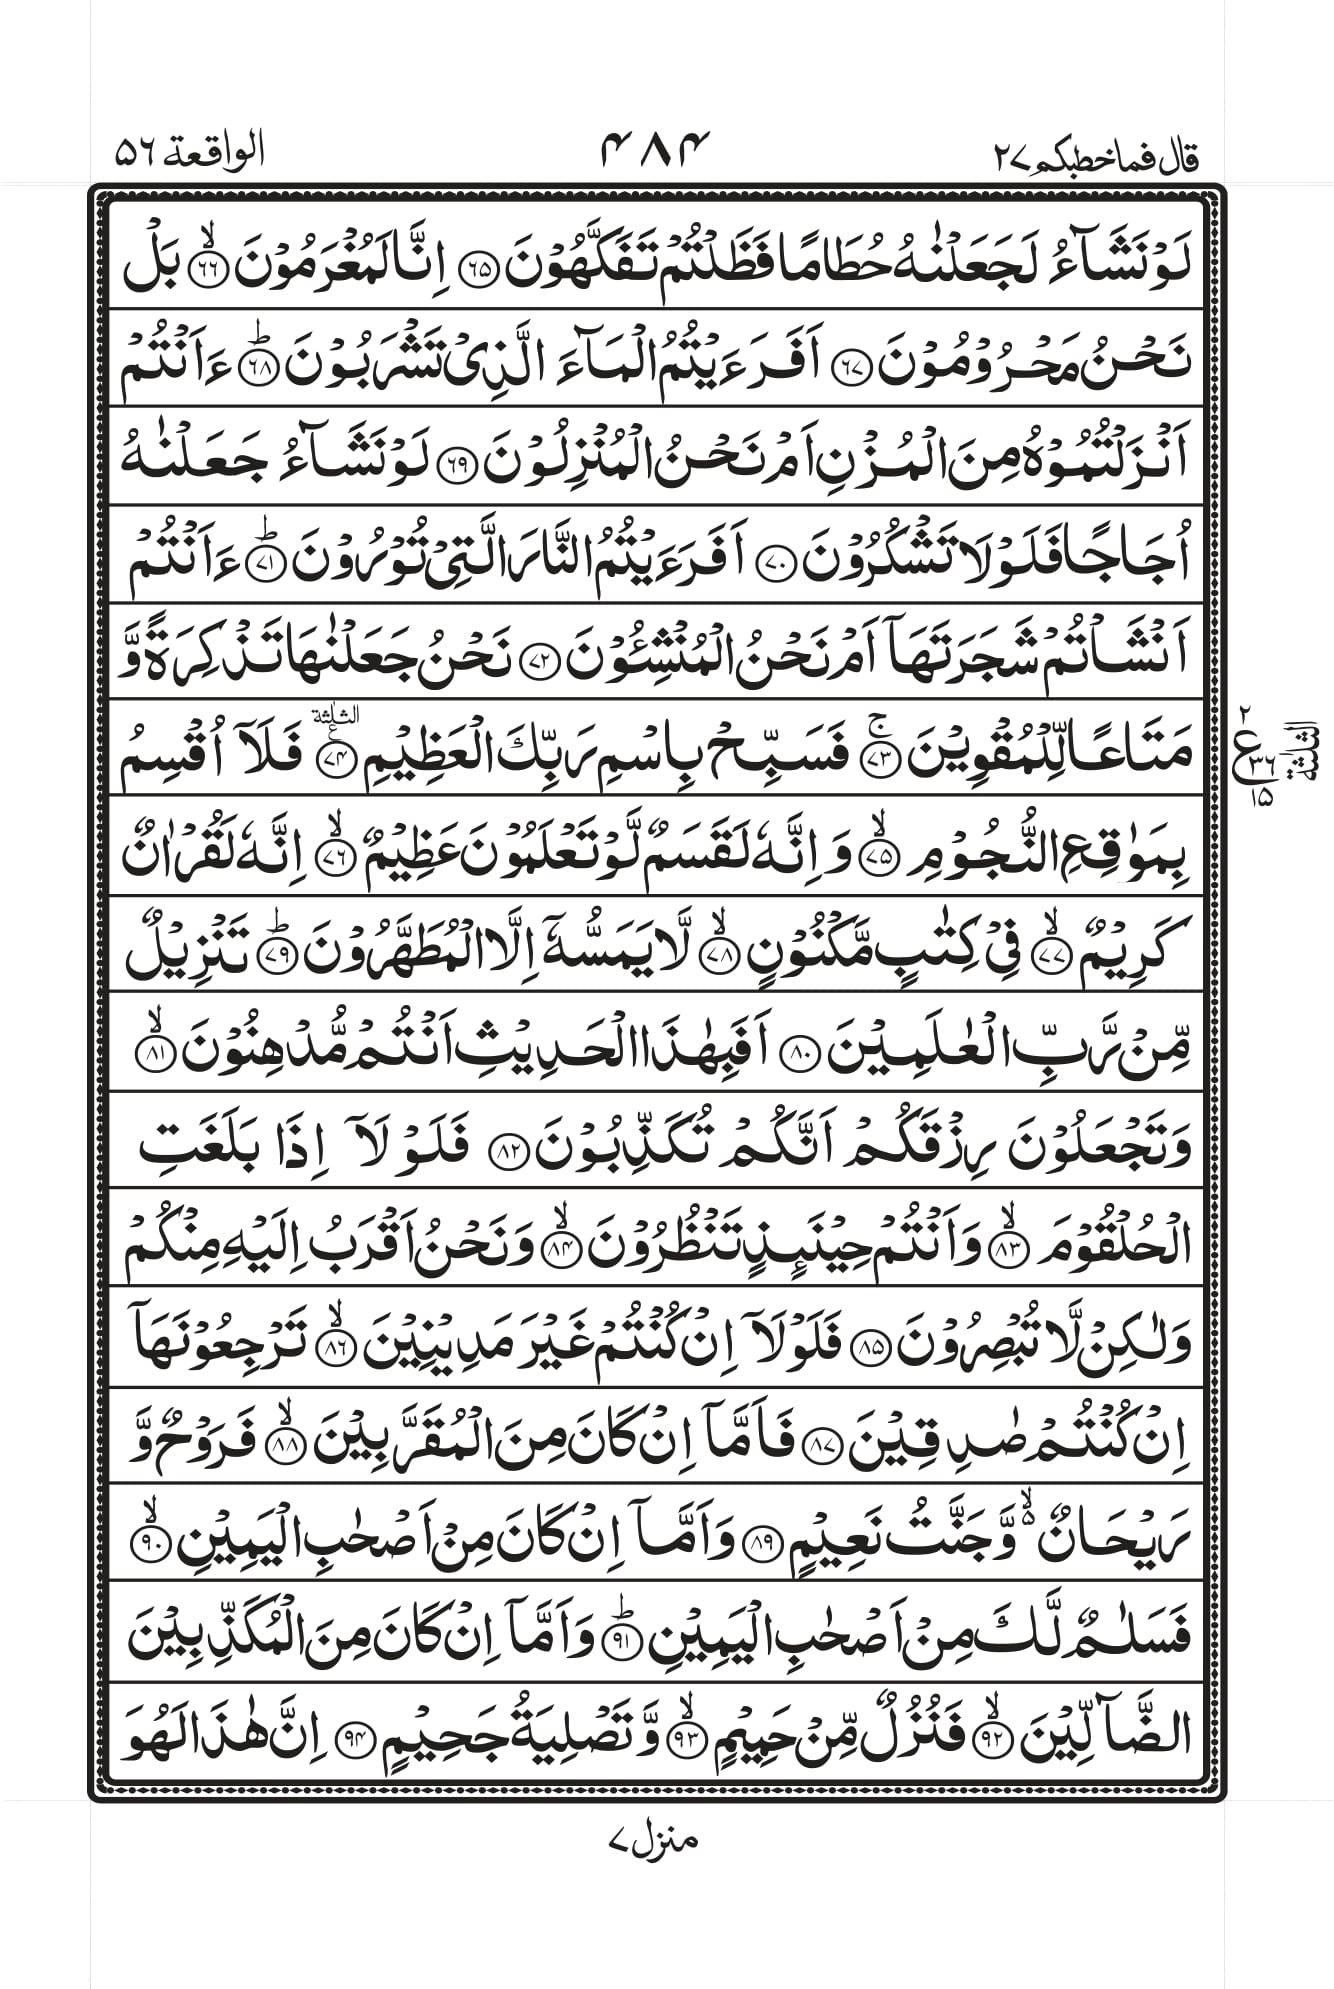 قال فماخطبکم ۲۷
۴۸۴
الواقعة ۵۶
لَوْ نَشَآءُ لَجَعَلْنٰهُ حُطَامًا فَظَلْتُمْ تَفَكَّهُوْنَ ۙ۝۶۵ اِنَّا لَمُغْرَمُوْنَ ۙ۝۶۶ بَلْ
نَحْنُ مَحْرُوْمُوْنَ ۝۶۷ اَفَرَءَيْتُمُ الْمَآءَ الَّذِيْ تَشْرَبُوْنَ ؕ۝۶۸ ءَاَنْتُمْ
اَنْزَلْتُمُوْهُ مِنَ الْمُزْنِ اَمْ نَحْنُ الْمُنْزِلُوْنَ ۝۶۹ لَوْ نَشَآءُ جَعَلْنٰهُ
اُجَاجًا فَلَوْلَا تَشْكُرُوْنَ ۝۷۰ اَفَرَءَيْتُمُ النَّارَ الَّتِيْ تُوْرُوْنَ ؕ۝۷۱ ءَاَنْتُمْ
اَنْشَاْتُمْ شَجَرَتَهَاۤ اَمْ نَحْنُ الْمُنْشِـُٔوْنَ ۝۷۲ نَحْنُ جَعَلْنٰهَا تَذْكِرَةً وَّ
مَتَاعًا لِّلْمُقْوِيْنَ ۚ۝۷۳ فَسَبِّحْ بِاسْمِ رَبِّكَ الْعَظِيْمِ ۝۷۴ الثلٰثة ع فَلَاۤ اُقْسِمُ
۲
ع
۳۶
۱۵
الثلٰثة
بِمَوٰقِعِ النُّجُوْمِ ۙ۝۷۵ وَ اِنَّهٗ لَقَسَمٌ لَّوْ تَعْلَمُوْنَ عَظِيْمٌ ۙ۝۷۶ اِنَّهٗ لَقُرْاٰنٌ
كَرِيْمٌ ۙ۝۷۷ فِيْ كِتٰبٍ مَّكْنُوْنٍ ۙ۝۷۸ لَّا يَمَسُّهٗۤ اِلَّا الْمُطَهَّرُوْنَ ؕ۝۷۹ تَنْزِيْلٌ
مِّنْ رَّبِّ الْعٰلَمِيْنَ ۝۸۰ اَفَبِهٰذَا الْحَدِيْثِ اَنْتُمْ مُّدْهِنُوْنَ ۙ۝۸۱
وَتَجْعَلُوْنَ رِزْقَكُمْ اَنَّكُمْ تُكَذِّبُوْنَ ۝۸۲ فَلَوْلَاۤ اِذَا بَلَغَتِ
الْحُلْقُوْمَ ۙ۝۸۳ وَاَنْتُمْ حِيْنَئِذٍ تَنْظُرُوْنَ ۙ۝۸۴ وَنَحْنُ اَقْرَبُ اِلَيْهِ مِنْكُمْ
وَلٰكِنْ لَّا تُبْصِرُوْنَ ۝۸۵ فَلَوْلَاۤ اِنْ كُنْتُمْ غَيْرَ مَدِيْنِيْنَ ۙ۝۸۶ تَرْجِعُوْنَهَاۤ
اِنْ كُنْتُمْ صٰدِقِيْنَ ۝۸۷ فَاَمَّاۤ اِنْ كَانَ مِنَ الْمُقَرَّبِيْنَ ۙ۝۸۸ فَرَوْحٌ وَّ
رَيْحَانٌ ۙ۬ وَّجَنَّتُ نَعِيْمٍ ۝۸۹ وَاَمَّاۤ اِنْ كَانَ مِنْ اَصْحٰبِ الْيَمِيْنِ ۙ۝۹۰
فَسَلٰمٌ لَّكَ مِنْ اَصْحٰبِ الْيَمِيْنِ ؕ۝۹۱ وَاَمَّاۤ اِنْ كَانَ مِنَ الْمُكَذِّبِيْنَ
الضَّآلِّيْنَ ۙ۝۹۲ فَنُزُلٌ مِّنْ حَمِيْمٍ ۙ۝۹۳ وَّتَصْلِيَةُ جَحِيْمٍ ۝۹۴ اِنَّ هٰذَا لَهُوَ
منزل ۷